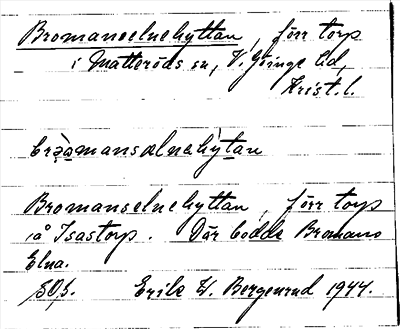 Bromanselnehyttan, förr torp
i Matteröds sn, V. Göinge hd,
Krist. l.
brǝamansælnehỳtan
Bromanselnehyttan, förr torp
i å Isastorp. Där bodde Bromans
Elna.
SOS. Erik W. Bergenrud 1944.